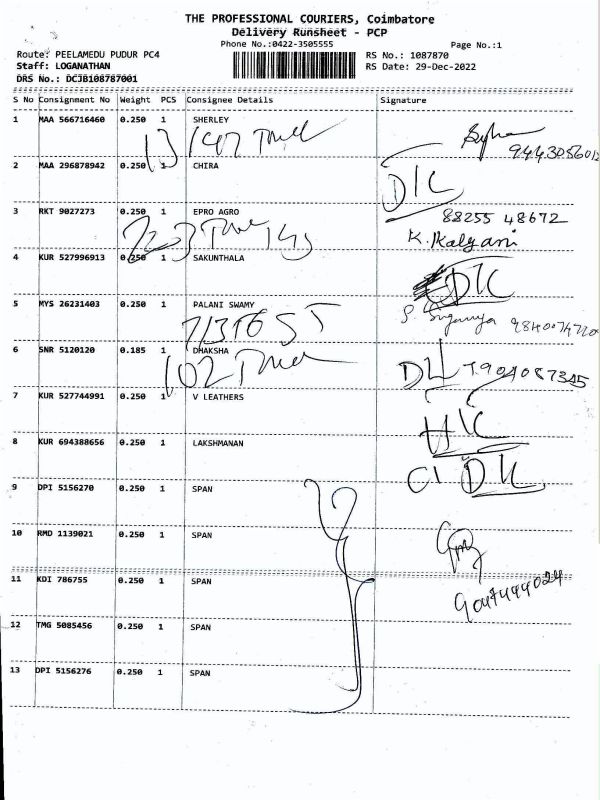 THE PROFESSIONAL COURIERS, Coimbatore
Delivery Runsheet - PCP
Phone No.:0422-3505555
Page No.:1
Route: PEELAMEDU PUDUR PC4
RS No.: 1087870
Staff: LOGANATHAN
RS Date: 29-Dec-2022
DRS No.: DCJB108787001
S No Consignment No Weight PCS Consignee Details Signature
1 MAA 566716460 0.250 1 SHERLEY
9443056012
2 MAA 296878942 0.250 1 CHIRA
3 RKT 9027273 0.250 1 EPRO AGRO
88255 48672
K. Kalyani
4 KUR 527996913 0.250 1 SAKUNTHALA
5 MYS 26231403 0.250 1 PALANI SWAMY
6 SNR 5120120 0.185 1 DHAKSHA
7 KUR 527744991 0.250 1 V LEATHERS
8 KUR 694388656 0.250 1 LAKSHMANAN
9 DPI 5156270 0.250 1 SPAN
10 RMD 1139021 0.250 1 SPAN
11 KDI 786755 0.250 1 SPAN
12 TMG 5085456 0.250 1 SPAN
13 DPI 5156276 0.250 1 SPAN